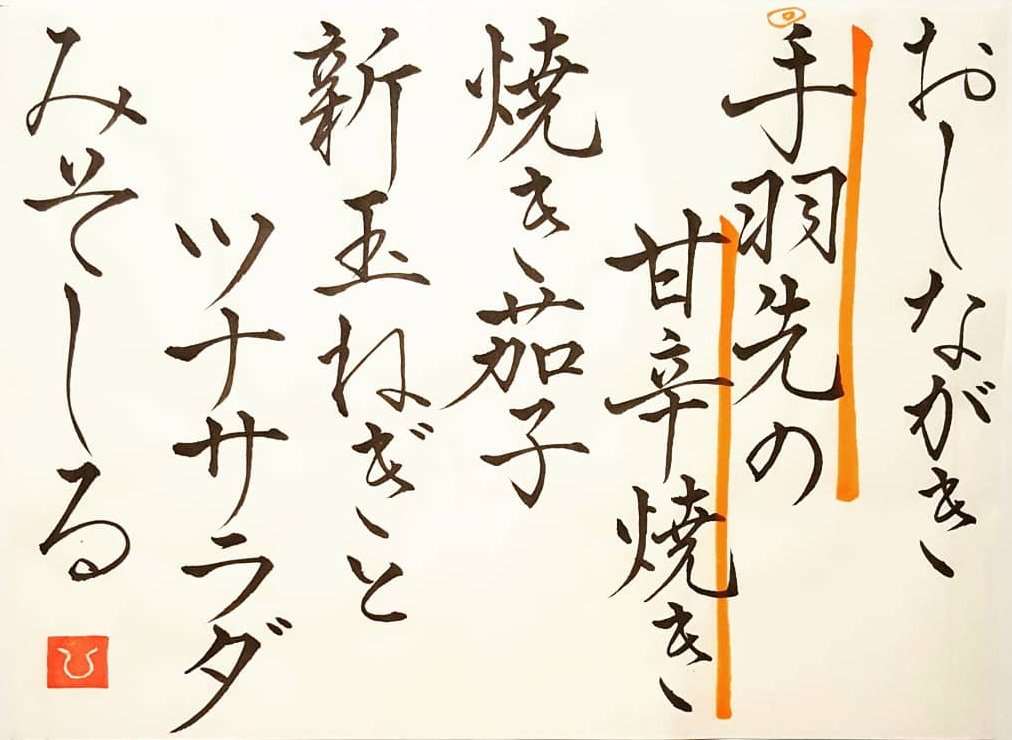 おしながき
手羽先の
甘辛焼き
焼き茄子
新玉ねぎと
ツナサラダ
みそしる
ひ